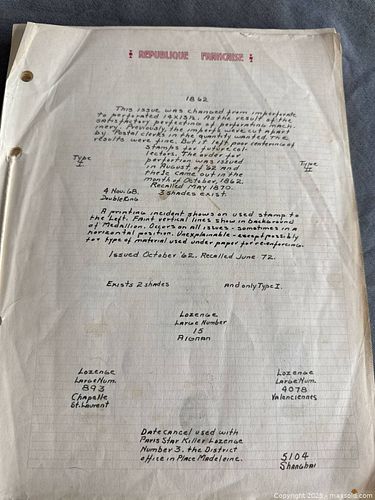 REPUBLIQUE FRANCAISE
1862
This issue was changed from imperforate
to perforated 14x13½. As the result of the
satisfactory perfection of perforating mach-
inery. Previously, the imperfs were cut apart
by Postal clerks in the quantity wanted. The
results were fine. But it left poor centering of
stamps for future col-
lectors. The order for
perforation was issued
in August, of '62 and
these came out in the
month of October, 1862.
Recalled May 1870.
3 shades exist.
Type
I.
Type
II
4 Nov. 68.
Double Ring
A printing incident shows on used stamp to
the Left. Faint vertical lines show in background
of Medallion. Occurs on all issues - sometimes in a
horizontal position. Unexplainable - except possibly
for type of material used under paper for re-enforcing.
Issued October '62. Recalled June 72.
Exists 2 shades
and only Type I.
Lozenge
Large Number
15
Aignan
Lozenge
Large Num.
893
Chapelle
St. Laurent
Lozenge
Large Num.
4078
Valenciennes
Date cancel used with
Paris Star Killer Lozenge
Number 3, the District
office in Place Madeleine.
5104
Shanghai
Copyright 2025 - maxsold.com